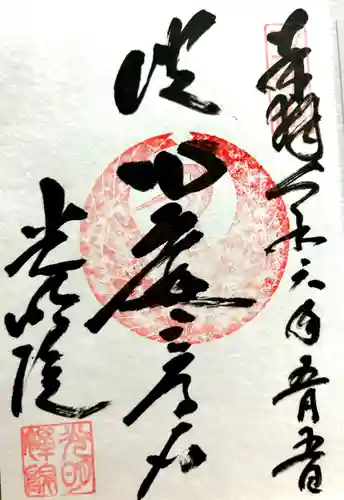 奉拝 令和六年五月五日
波心庭
光明院
光明
禅院